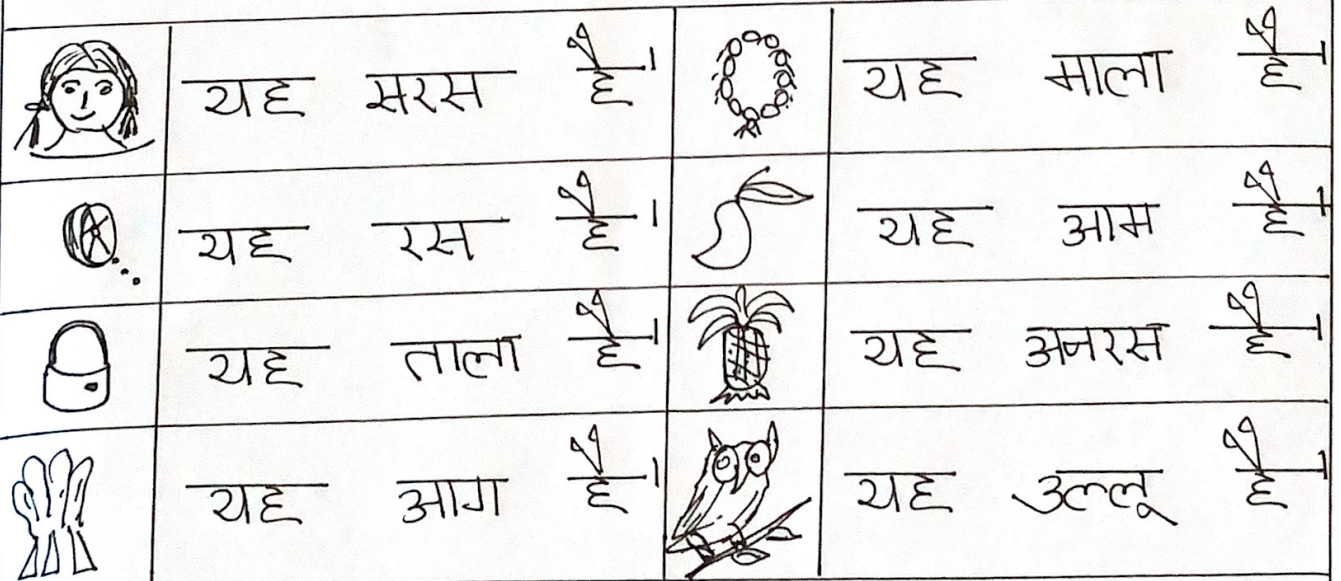 यह सरस है।
यह माला है।
यह रस है।
यह आम है।
यह ताला है।
यह अनरस है।
यह आग है।
यह उल्लू है।